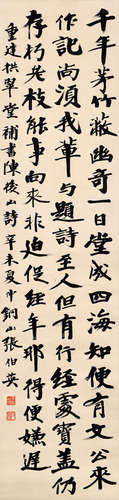 千年茅竹蔽幽奇一日堂成四海知便有文公來
作記尚須我輩與題詩至人但有行經處寶蓋仍
存朽老枝能事向來非迫促經年那得便嫌遲
重建拱翠堂補書陳後山詩辛未夏中銅山張伯英